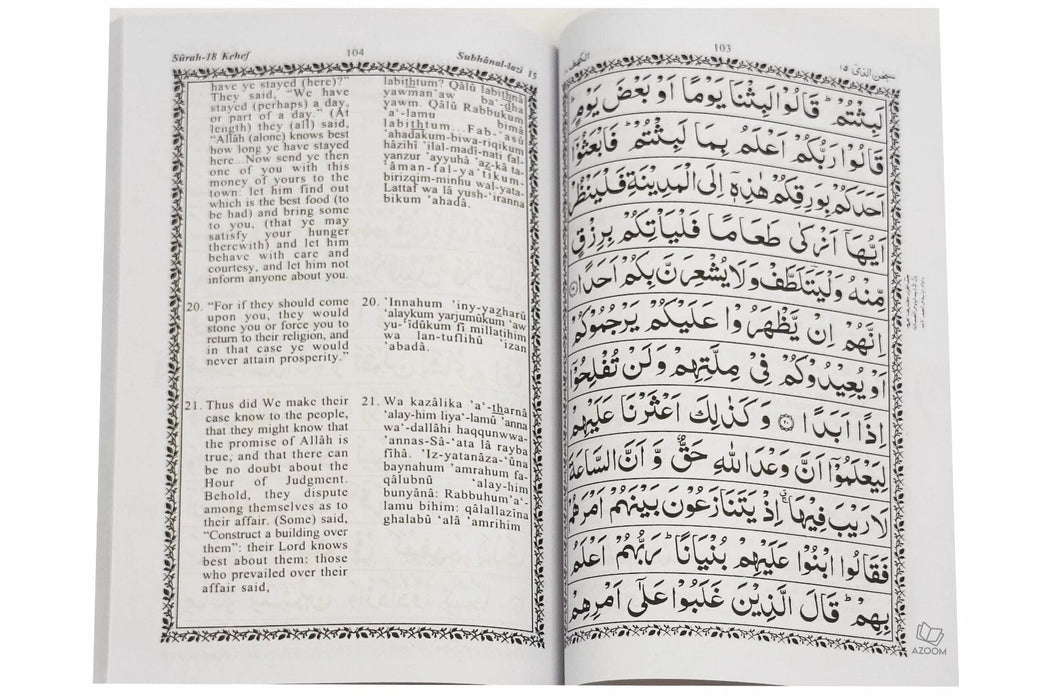 Sûrah-18 Kehef
104
Subhânal-lazi 15
have ye stayed (here)?"
They said, "We have
stayed (perhaps) a day,
or part of a day." (At
length) they (all) said,
"Allâh (alone) knows best
how long ye have stayed
here...Now send ye then
one of you with this
money of yours to the
town: let him find out
which is the best food (to
be had) and bring some
to you, (that ye may
satisfy your hunger
therewith) and let him
behave with care and
courtesy, and let him not
inform anyone about you.
20. "For if they should come
upon you, they would
stone you or force you to
return to their religion, and
in that case ye would
never attain prosperity."
21. Thus did We make their
case know to the people,
that they might know that
the promise of Allâh is
true, and that there can
be no doubt about the
Hour of Judgment.
Behold, they dispute
among themselves as to
their affair. (Some) said,
"Construct a building over
them": their Lord knows
best about them: those
who prevailed over their
affair said,
labithtum? Qâlû labithnâ
yawman 'aw ba'-dha
yawm. Qâlû Rabbukum
'a'-lamu bimâ
labithtum...Fab-'asû
'ahadakum-biwa-riqikum
hâzihî 'ilal-madî-nati fal-
yanzur 'ayyuhâ 'az-kâ ta-
'âman-fal-ya'tikum-
birizqim-minhu wal-yata-
Lattaf wa lâ yush-'iranna
bikum 'ahadâ.
20. 'Innahum 'iny-yazharû
'alaykum yarjumûkum 'aw
yu-'îdûkum fî millatihim
wa lan-tuflihû 'izan
'abadâ.
21. Wa kazâlika 'a'-tharnâ
'alay-him liya'-lamû 'anna
wa'-dallâhi haqqunwwa-
'annas-Sâ-'ata lâ rayba
fîhâ. 'Iz-yatanâza-'ûna
baynahum 'amrahum fa-
qâlubnû 'alay-him
bunyânâ: Rabbuhum'a'-
lamu bihim: qâlallazîna
ghalabû 'alâ 'amrihim
الكهف
103
سبحن الذی ١٥
لَبِثْتُمْ ؕ قَالُوْا لَبِثْنَا يَوْمًا اَوْ بَعْضَ يَوْمٍ ؕ
قَالُوْا رَبُّكُمْ اَعْلَمُ بِمَا لَبِثْتُمْ ؕ فَابْعَثُوْۤا
اَحَدَكُمْ بِوَرِقِكُمْ هٰذِهٖۤ اِلَى الْمَدِيْنَةِ فَلْيَنْظُرْ
اَيُّهَاۤ اَزْكٰى طَعَامًا فَلْيَاْتِكُمْ بِرِزْقٍ
مِّنْهُ وَلْيَتَلَطَّفْ وَلَا يُشْعِرَنَّ بِكُمْ اَحَدًا ۝
اِنَّهُمْ اِنْ يَّظْهَرُوْا عَلَيْكُمْ يَرْجُمُوْكُمْ
اَوْ يُعِيْدُوْكُمْ فِيْ مِلَّتِهِمْ وَلَنْ تُفْلِحُوْۤا
اِذًا اَبَدًا ۝٢٠ وَكَذٰلِكَ اَعْثَرْنَا عَلَيْهِمْ
لِيَعْلَمُوْۤا اَنَّ وَعْدَ اللّٰهِ حَقٌّ وَّاَنَّ السَّاعَةَ
لَا رَيْبَ فِيْهَا ۚ اِذْ يَتَنَازَعُوْنَ بَيْنَهُمْ اَمْرَهُمْ
فَقَالُوا ابْنُوْا عَلَيْهِمْ بُنْيَانًا ؕ رَبُّهُمْ اَعْلَمُ
بِهِمْ ؕ قَالَ الَّذِيْنَ غَلَبُوْا عَلٰۤى اَمْرِهِمْ
AZOOM